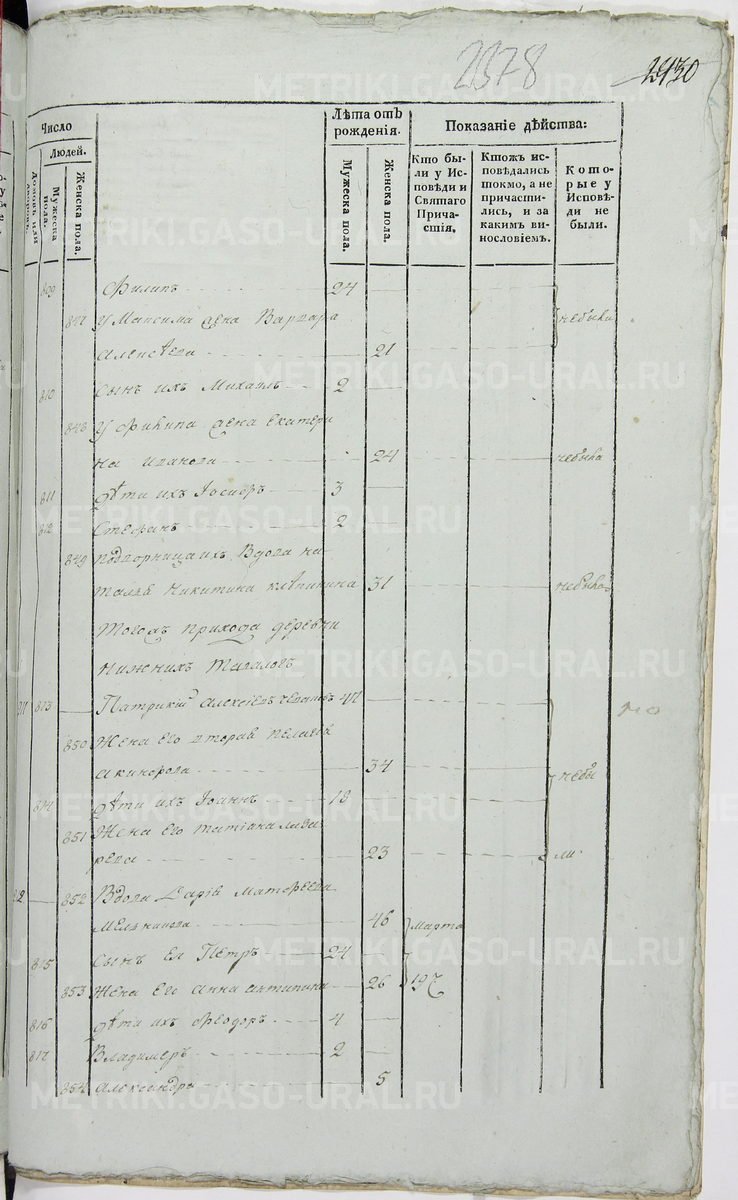 2378
2430
Число
Людей.
Домовъ или дворовъ.
Мужеска пола.
Женска пола.
Лѣта отъ рожденія.
Мужеска пола.
Женска пола.
Показаніе дѣйства:
Кто были у Исповѣди и Святаго Причастія.
Ктожъ исповѣдались токмо, а не причастились, и за какимъ винословіемъ.
Которые у Исповѣди не были.
809 Филипъ 24
847 У Максима жена Варвара
Алексѣева 21 небыли
810 Сынъ ихъ Михаилъ 2
848 У Филипа жена Екатери
на Иванова 24 небыла
811 дѣти ихъ Іосифъ 3
812 Стефанъ 2
849 подворница ихъ Вдова На
талья Никитина 31 небыла
Тогожъ прихода деревни
Нижнихъ Тавологъ
813 Патрикій Алексѣевъ 47
850 Жена его вторая Пелагея
34 небы
814 дѣти ихъ Іоаннъ 18
851 Жена его Татіана Лаза
рева 23 ли
812 852 Вдова Дарія Матфеева
Мельникова 46 Марта
815 Сынъ ея Петръ 24
853 Жена его Анна Антипина 26 19
816 дѣти ихъ Феодоръ 4
817 Владимеръ 2
854 Александра 5
METRIKI.GASO-URAL.RU